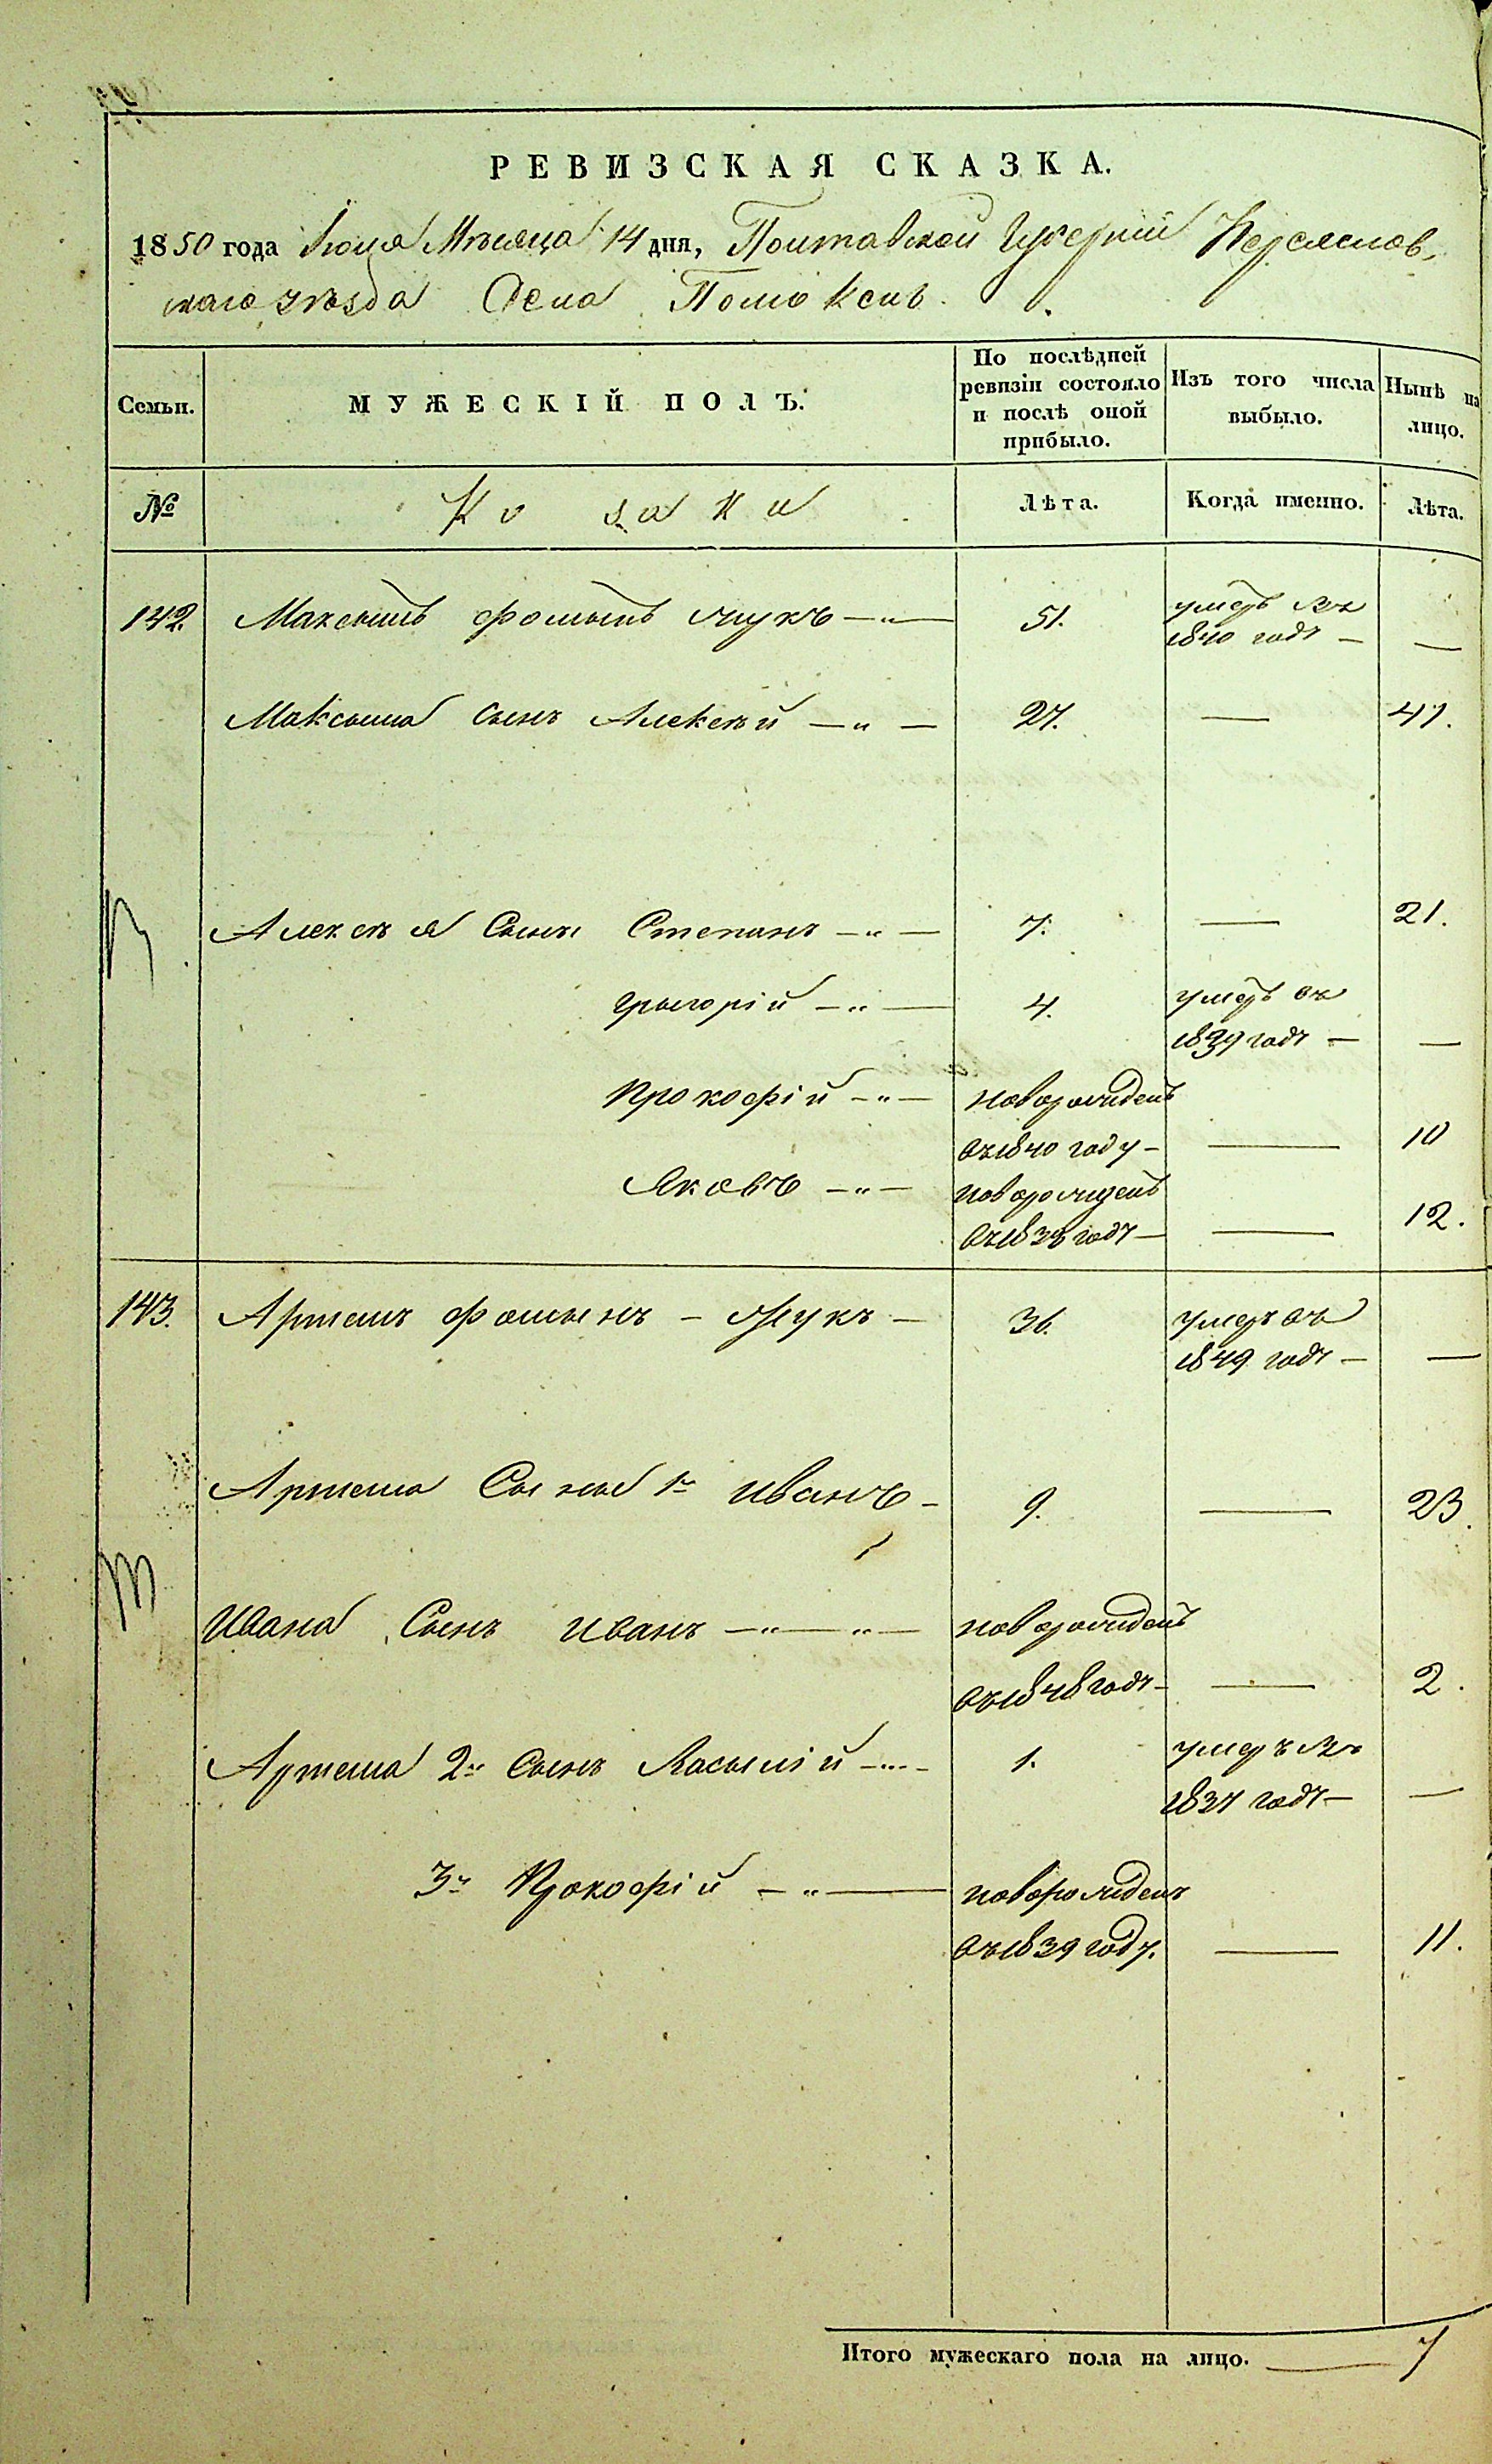 РЕВИЗСКАЯ СКАЗКА.
1850 года Іюня Мѣсяца 14 дня, Полтавской Губерніи Переяслов,
скаго уѣзда Села Помоклъ.
Семьи.
МУЖЕСКІЙ ПОЛЪ.
По послѣдней ревизіи состояло и послѣ оной прибыло.
Изъ того числа выбыло.
Нынѣ на лицо.
№
Козаки
Лѣта.
Когда именно.
Лѣта.
142. Максымъ Фомынъ Жукъ —"— 51. умеръ въ
1840 году — —
Максыма Сынъ Алексѣй —"— 27. — 41.
Алексѣя Сыны Степанъ —"— 7. — 21.
Грыгорій —"— 4. умеръ въ
1839 году — —
Прокофій —"— новорожденъ
въ 1840 году — — 10
Яковъ —"— новорожденъ
въ 1838 году — — 12.
143. Артемъ Фомынъ — Жукъ — 36. умеръ въ
1849 году — —
Артема Сыны 1й Иванъ — 9. — 23.
Ивана Сынъ Иванъ —"—"— новорожденъ
въ 1848 году — — 2.
Артема 2й Сынъ Васылій —"— 1. умеръ въ
1837 году — —
3й Прокофій —"— новорожденъ
въ 1839 году. — 11.
Итого мужескаго пола на лицо. — 7